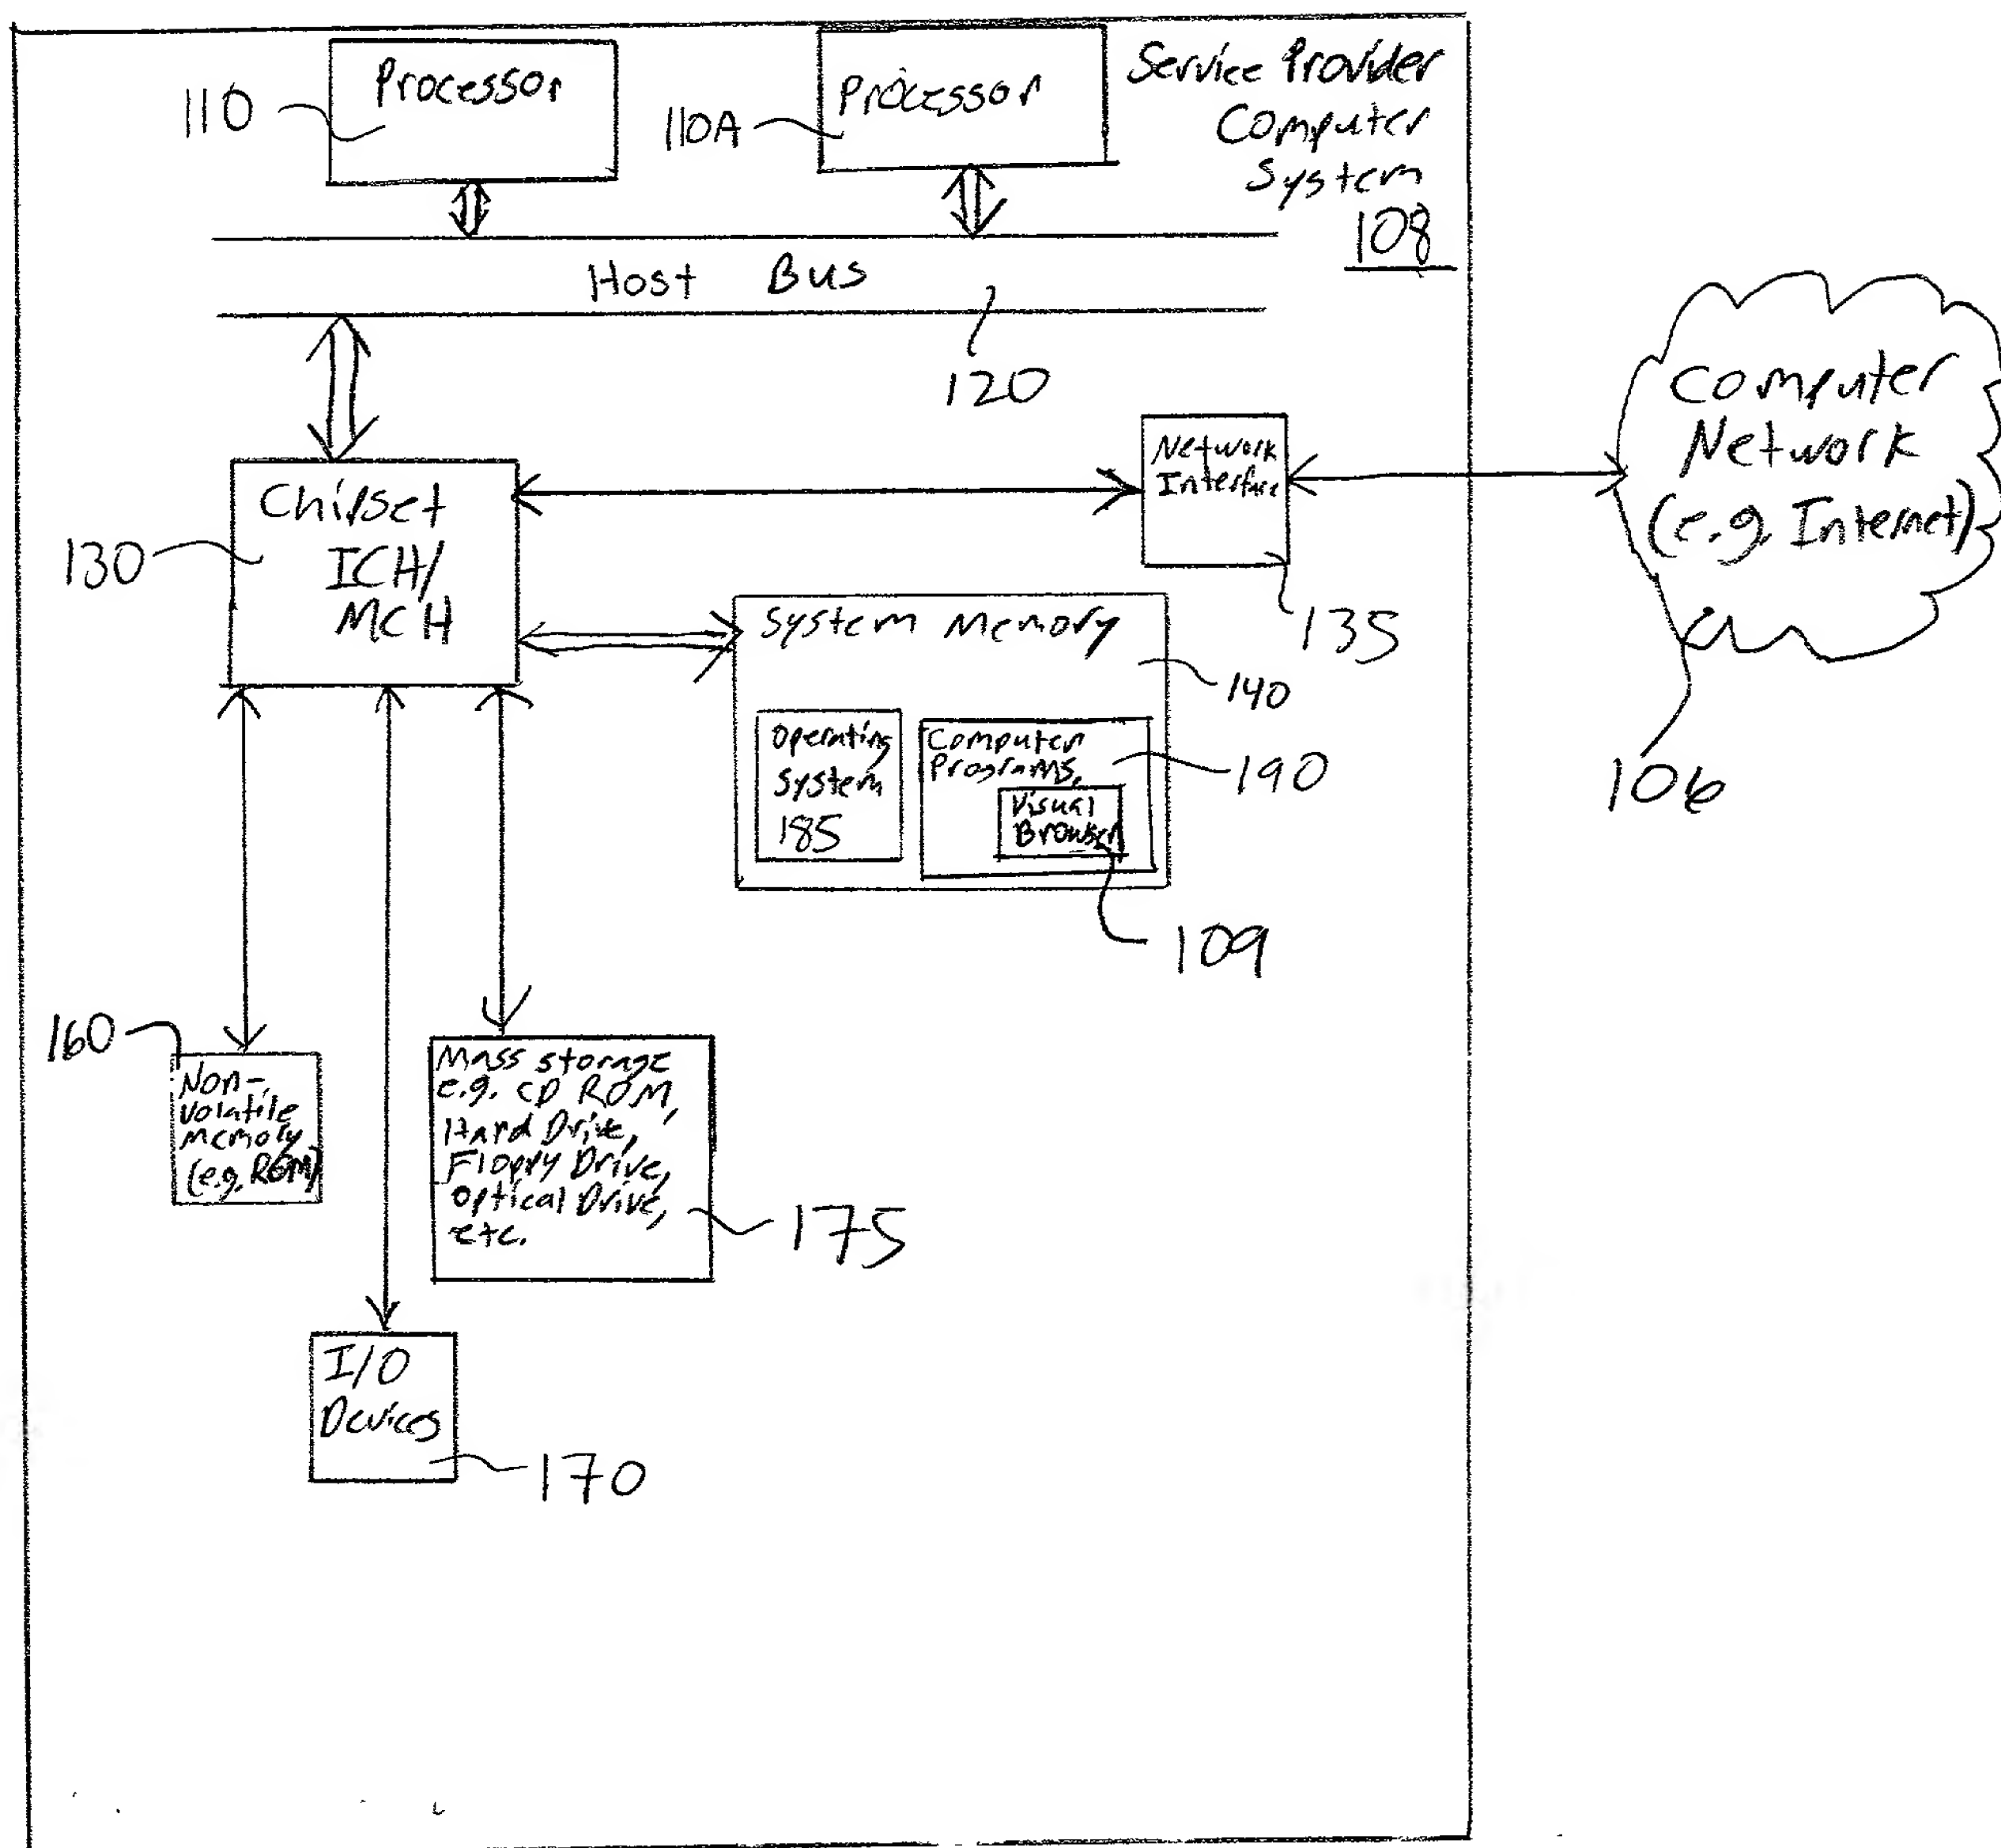 Processor
110
Processor
110A
Service Provider
Computer
System
108
Host Bus
120
Computer
Network
(e.g. Internet)
106
Network
Interface
135
Chipset
ICH/
MCH
130
System Memory
140
Operating
System
185
Computer
Programs,
190
Visual
Browser
109
160
Non-
Volatile
Memory
(e.g. ROM)
Mass storage
e.g. CD ROM,
Hard Drive,
Floppy Drive,
Optical Drive,
etc.
175
I/O
Devices
170